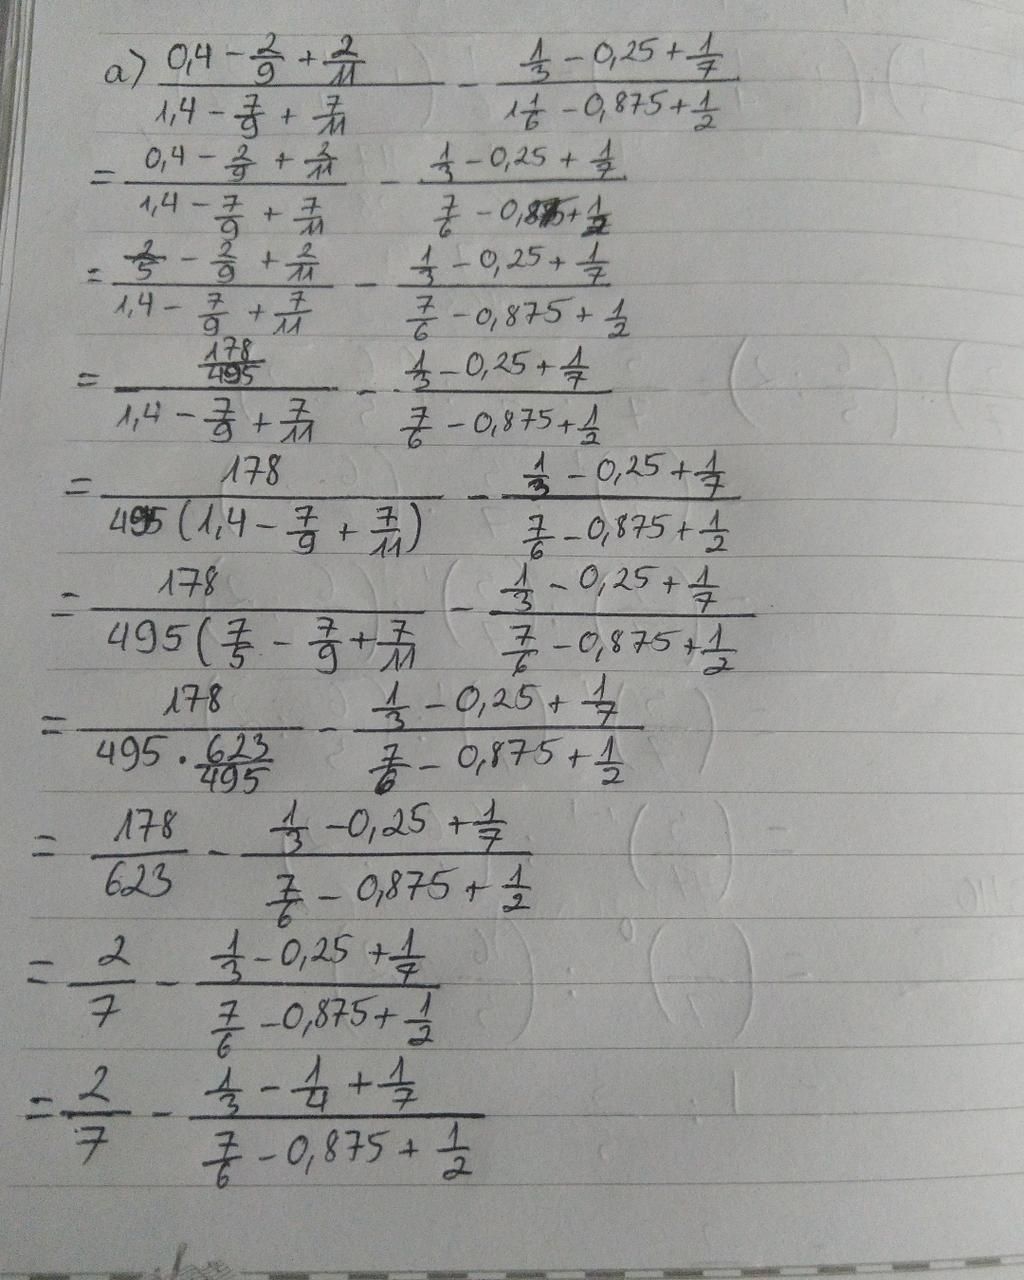 a) (0,4 - 2/9 + 2/11)/(1,4 - 7/9 + 7/11) - (1/3 - 0,25 + 1/7)/(1 1/6 - 0,875 + 1/2)
= (0,4 - 2/9 + 2/11)/(1,4 - 7/9 + 7/11) - (1/3 - 0,25 + 1/7)/(7/6 - 0,875 + 1/2)
= (2/5 - 2/9 + 2/11)/(1,4 - 7/9 + 7/11) - (1/3 - 0,25 + 1/7)/(7/6 - 0,875 + 1/2)
= (178/495)/(1,4 - 7/9 + 7/11) - (1/3 - 0,25 + 1/7)/(7/6 - 0,875 + 1/2)
= 178/(495 (1,4 - 7/9 + 7/11)) - (1/3 - 0,25 + 1/7)/(7/6 - 0,875 + 1/2)
= 178/(495 (7/5 - 7/9 + 7/11) - (1/3 - 0,25 + 1/7)/(7/6 - 0,875 + 1/2)
= 178/(495 . 623/495) - (1/3 - 0,25 + 1/7)/(7/6 - 0,875 + 1/2)
= 178/623 - (1/3 - 0,25 + 1/7)/(7/6 - 0,875 + 1/2)
= 2/7 - (1/3 - 0,25 + 1/7)/(7/6 - 0,875 + 1/2)
= 2/7 - (1/3 - 1/4 + 1/7)/(7/6 - 0,875 + 1/2)